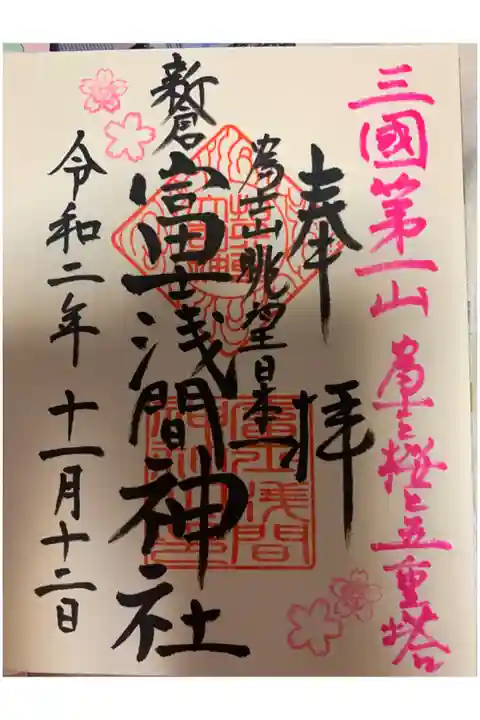 三國第一山 富士と桜と五重塔
奉拝
富士山眺望日本一
新倉
富士浅間神社
令和二年 十一月十二日
富士浅間